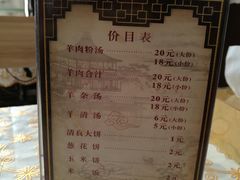 价目表
羊肉粉汤 20元(大份)
18元(小份)
羊肉合汁 20元(大份)
18元(小份)
羊杂汤 20元(大份)
18元(小份)
羊清汤 6元(大份)
5元(小份)
清真大饼 1元
葱花饼 2元
玉米饼 2元
米饭